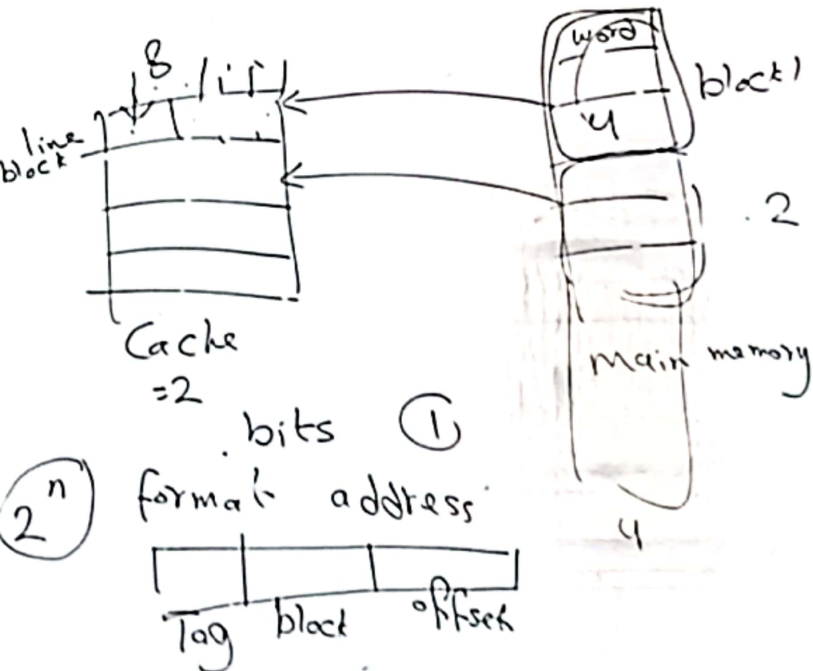 8
line
block
Cache
=2
word
4
block 1
. 2
main memory
4
bits ①
2^n
format address
Tag block offset